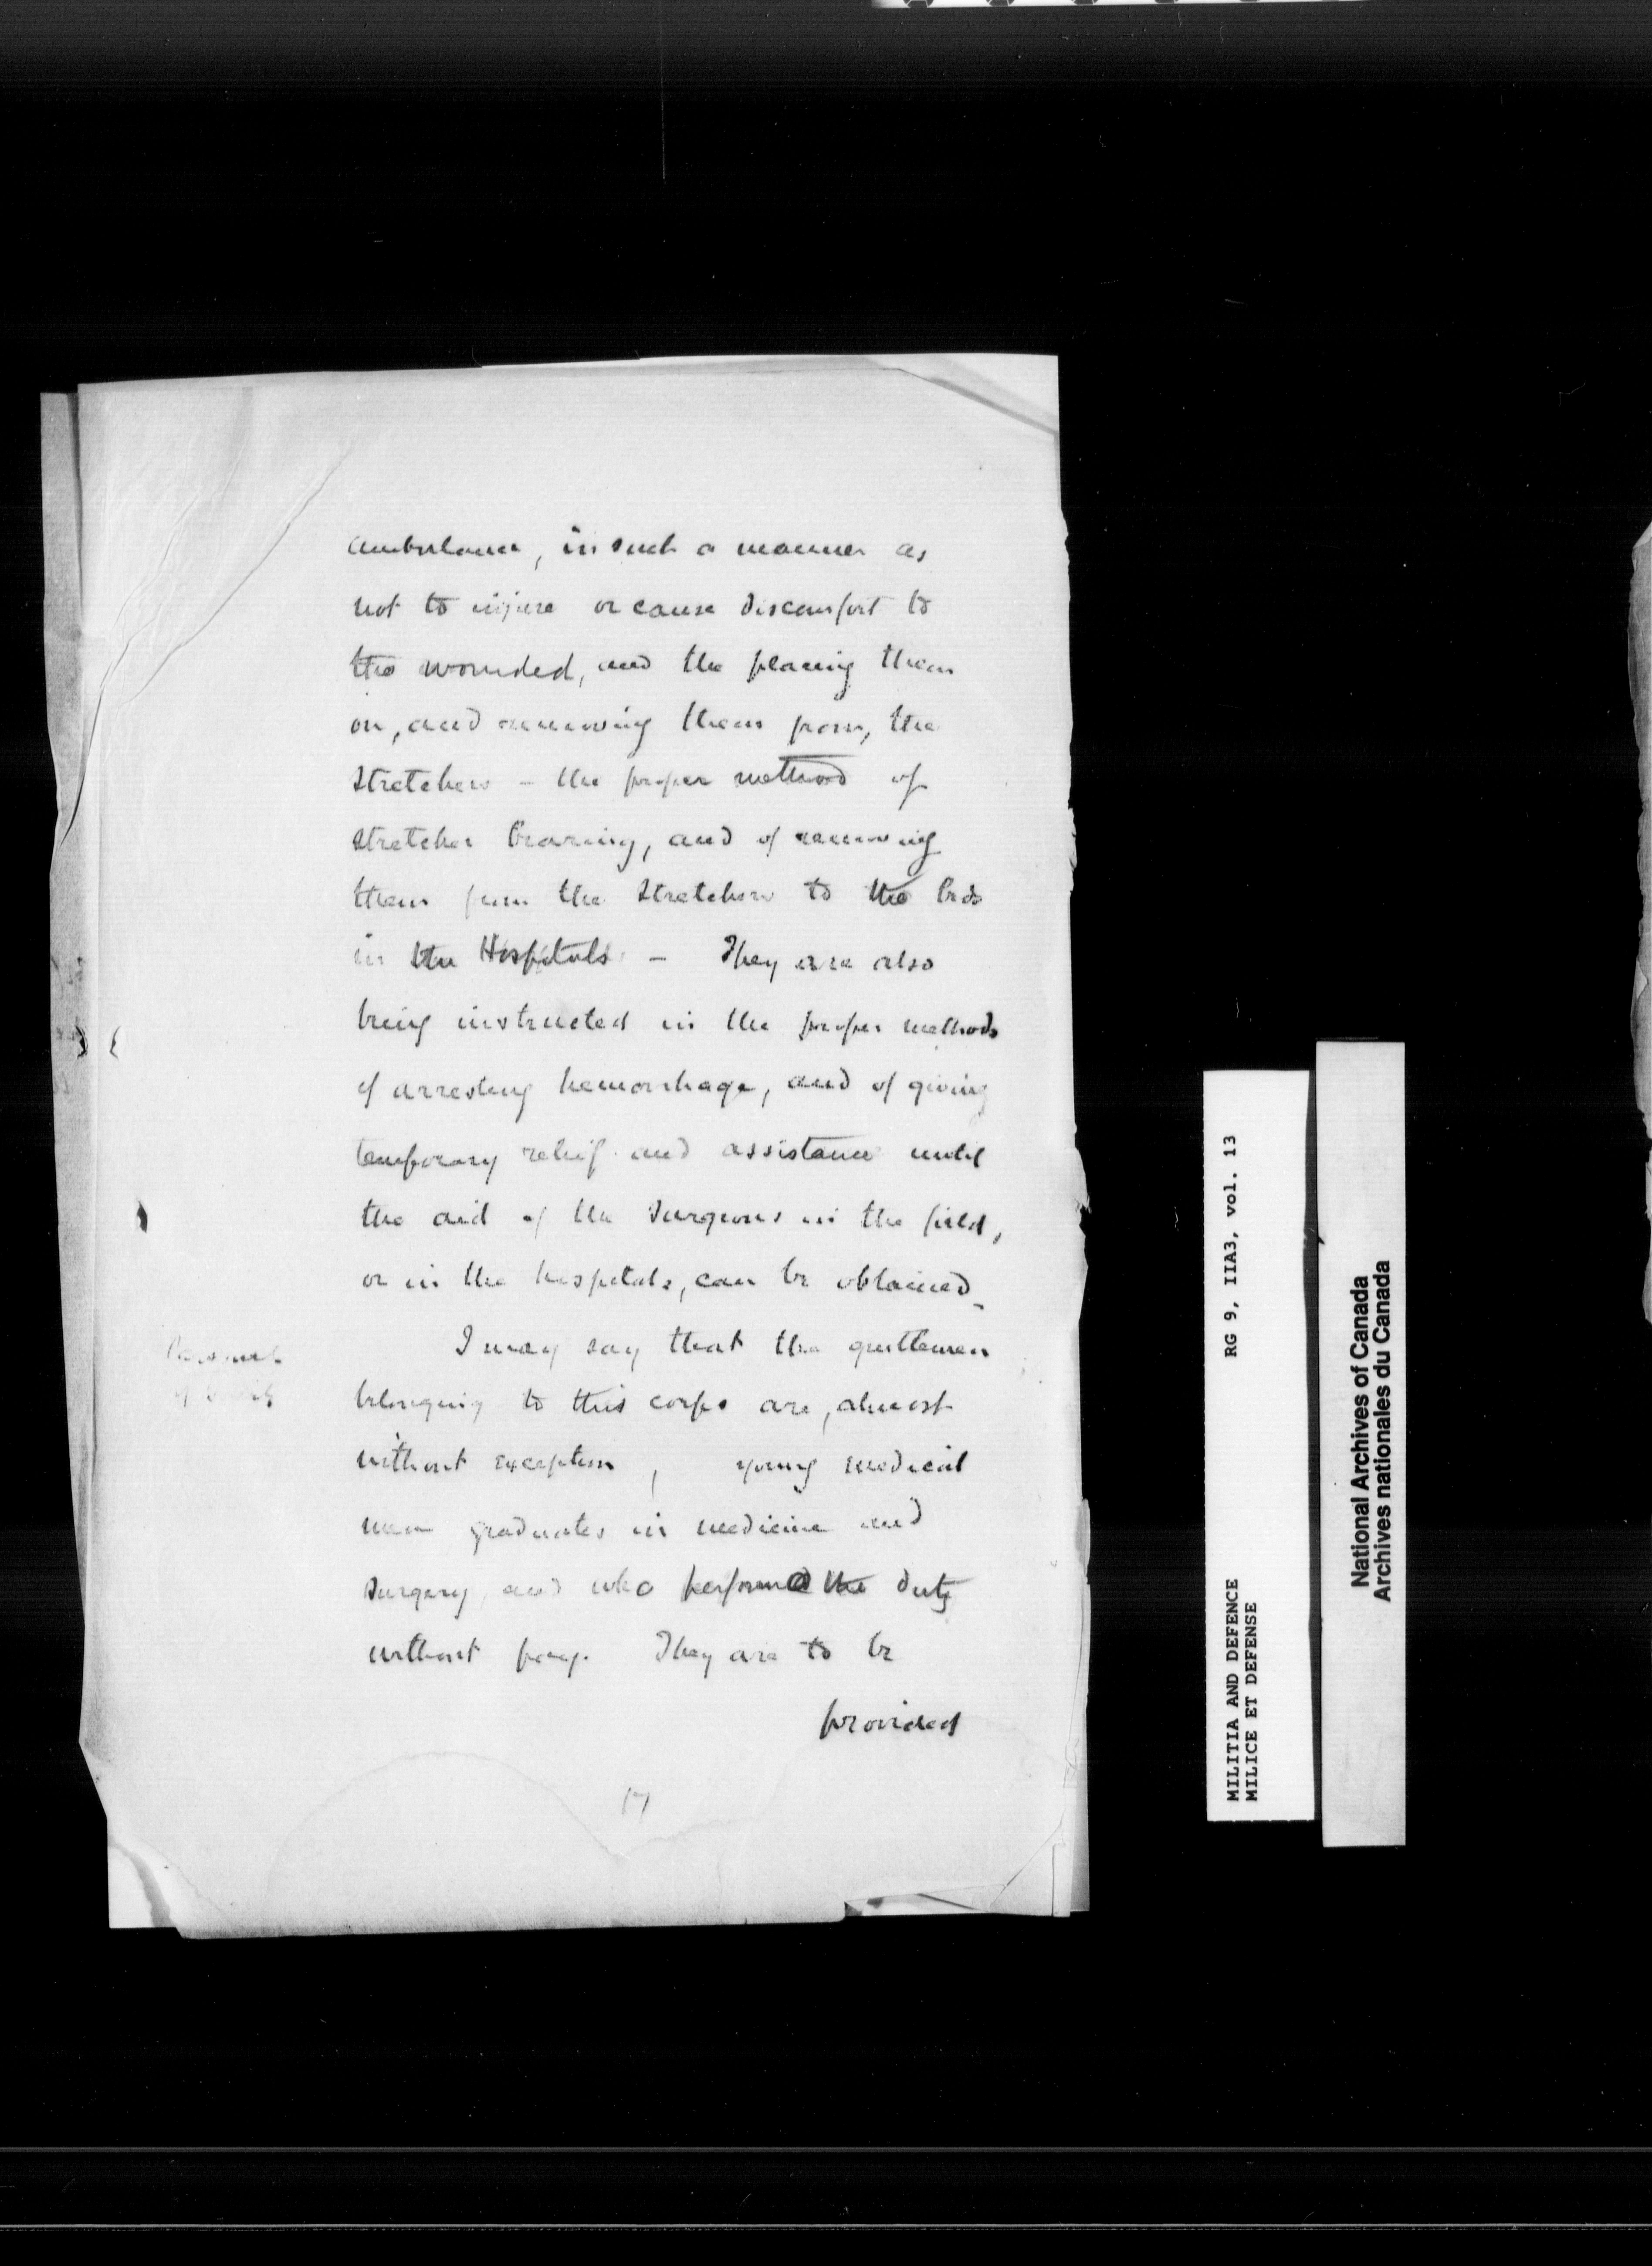 ambulance, in such a manner as
not to injure or cause discomfort to
the wounded, and the placing them
on, and removing them from, the
stretchers - the proper method of
stretcher bearing, and of removing
them from the stretchers to the beds
in the Hospitals - They are also
being instructed in the proper methods
of arresting hemorrhage, and of giving
temporary relief and assistance until
the aid of the Surgeons in the field,
or in the hospitals, can be obtained_
I may say that the gentlemen
belonging to this corps are, almost
without exception, young medical
men graduates in medicine and
surgery, and who perform the duty
without pay. They are to be
provided
17
RG 9, IIA3, vol. 13
MILITIA AND DEFENCE
MILICE ET DEFENSE
National Archives of Canada
Archives nationales du Canada